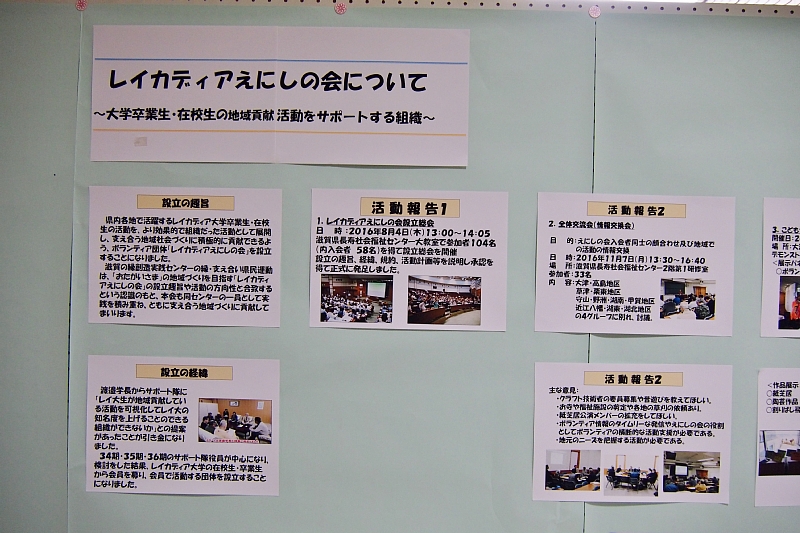 レイカディアえにしの会について
～大学卒業生・在校生の地域貢献活動をサポートする組織～
設立の趣旨
県内各地で活躍するレイカディア大学卒業生・在校
生の活動を、より効果的で組織だった活動として展開
し、支え合う地域社会づくりに積極的に貢献できるよ
う、ボランティア団体「レイカディアえにしの会」を設立
することになりました。
滋賀の縁創造実践センターの縁・支え合い県民運動
は、「おたがいさま」の地域づくりを目指す「レイカディ
アえにしの会」の設立趣旨や活動の方向性と合致する
という認識のもと、本会も同センターの一員として実
践を積み重ね、ともに支え合う地域づくりに貢献して
まいります。
設立の経緯
渡邉学長からサポート隊に
「レイ大生が地域貢献している
活動を可視化してレイ大の
知名度を上げることのできる
組織ができないか」との提案
があったことが引き金になり
ました。
34期・35期・36期のサポート隊役員が中心になり、
検討をした結果、レイカディア大学の在校生・卒業生
から会員を募り、会員で活動する団体を設立すること
になりました。
活動報告1
1. レイカディアえにしの会設立総会
日 時：2016年8月4日(木)13:00～14:05
滋賀県長寿社会福祉センター大教室で参加者104名
(内入会者 58名)を得て設立総会を開催
設立の趣旨、経緯、規約、活動計画等を説明し承認を
得て正式に発足しました。
活動報告2
2. 全体交流会(情報交換会)
目 的：えにしの会入会者同士の顔合わせ及び地域で
の活動の情報交換
日 時：2016年11月7日(月)13:30～16:40
場 所：滋賀県長寿社会福祉センター2階第1研修室
参加者：33名
内 容：大津・高島地区
草津・栗東地区
守山・野洲・湖南・甲賀地区
近江八幡・湖東・湖北地区
の4グループに別れ、討議。
活動報告2
主な意見：
・クラフト技術者の要員募集や昔遊びを教えてほしい。
・お寺や福祉施設の剪定や各地の草刈の依頼あり。
・紙芝居公演メンバーの拡充をしてほしい。
・ボランティア情報のタイムリーな発信やえにしの会の役割
としてボランティアの横断的な活動支援が必要である。
・地元のニーズを把握する活動が必要である。
3. こども
開催日：2
場 所：大
デモンスト
＜展示パネ
＜作品展示
○紙芝居
○陶芸作品
○割りばし